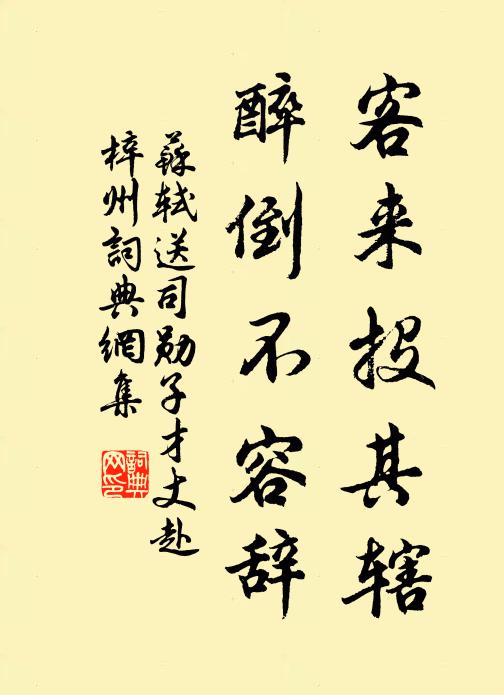 客来投其辖
醉倒不容辞
蘇軾送司勋子才丈赴
梓州詞典網集
詞典网印